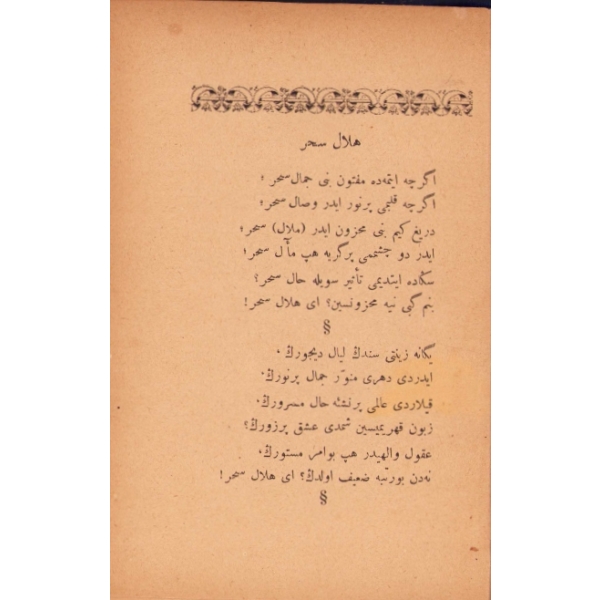 هلال سحر
اگرچه ایتمه‌ده مفتون بنی جمال سحر؛
اگرچه قلبمی پرنور ایدر وصال سحر؛
دریغ کیم بنی محزون ایدر (ملال) سحر؛
ایدر دو چشممی پرگریه هپ مآل سحر؛
سڭاده ایتدیمی تأثیر سویله حال سحر؟
بنم گبی نیه محزونسین؟ ای هلال سحر!
§
یگانه زینتی سندڭ لیال دیجورڭ،
ایدردی دهری منوّر جمال پرنورڭ.
قیلاردی عالمی پرنشئه حال مسرورڭ.
زبون قهریمیسین شمدی عشق پرزورڭ؟
عقول والهیدر هپ بوامر مستورڭ.
نه‌دن بورتبه ضعیف اولدڭ؟ ای هلال سحر!
§